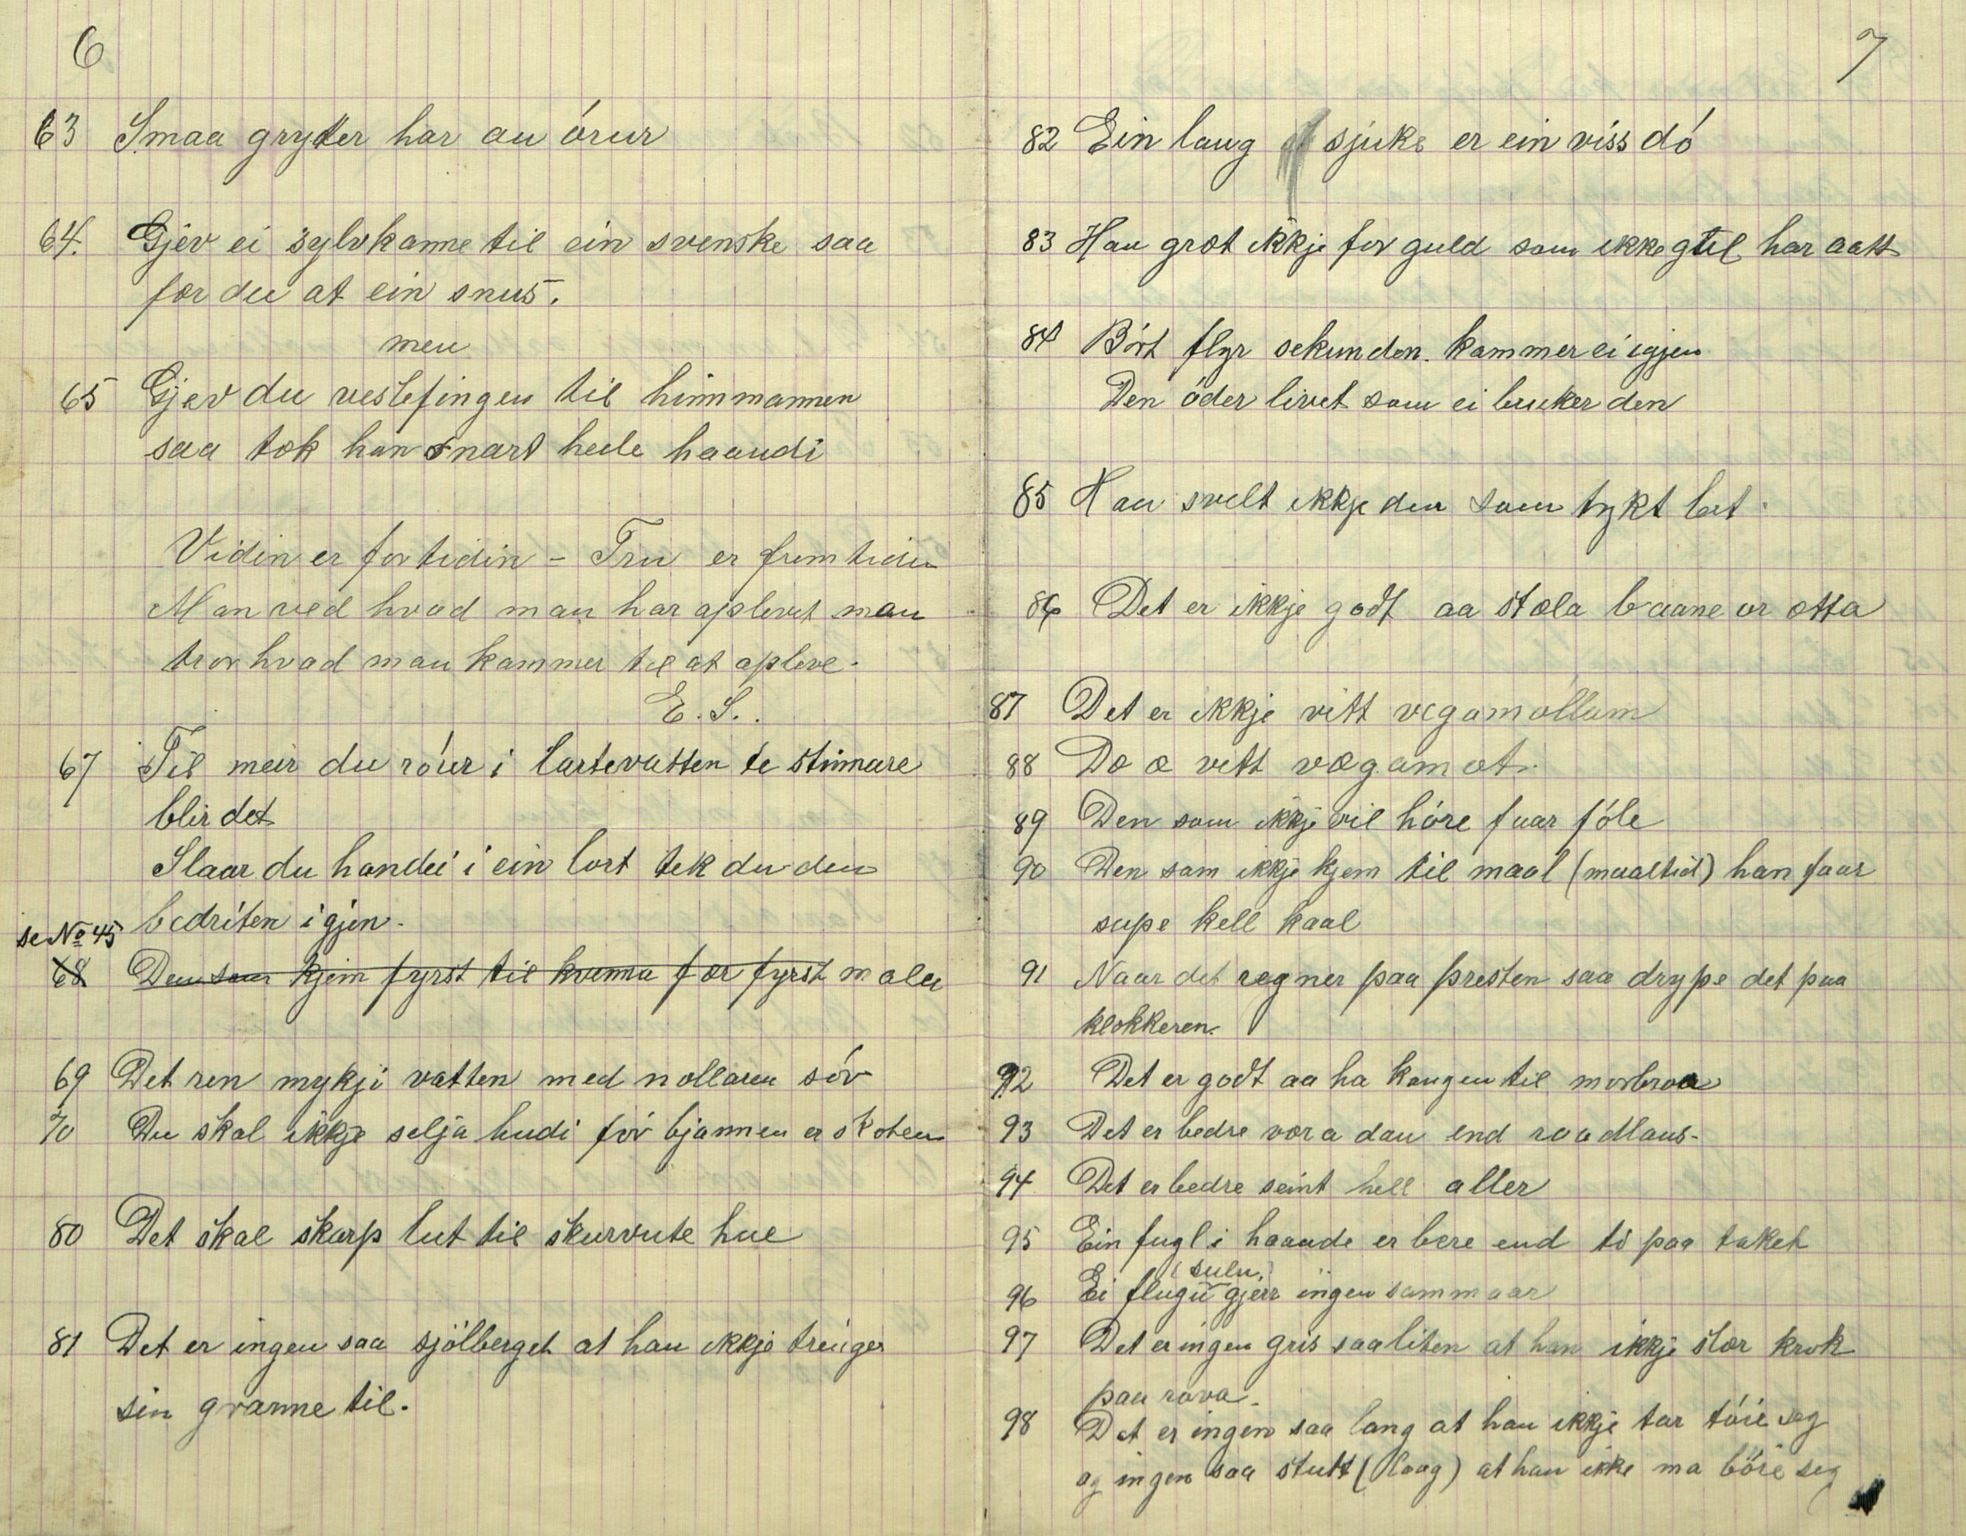 6
63 Smaa gryter har au órur
64. Gjev ei sylvkanne til ein svenske saa
fær du at ein snus.
men
65 Gjev du veslefingen til hinmannen
saa tok han snart heile haandi
Vidin er fortidin – Tru er fremtidin
Man ved hvad man har oplevet man
tror hvad man kommer til at opleve.
E. S.
67 Til meir du róur i lortevatten te stinnare
blir det
Slaar du handei i ein lort tek du den
bedriten igjen.
se No 45
68 Den som kjem fyrst til kverna fær fyrst mala
69 Det ren mykji vatten med mollaren sóv
70 Du skal ikkje selja hudi fór bjønnen er skoten
80 Det skal skarp lut til skurvute hue
81 Det er ingen saa sjölberget at han ikkje trenger
sin granne til.
7
82 Ein laug sjuke er ein viss dó
83 Han græt ikkje for guld som ikke gul har aatt
84 Bórt flyr sekunden. kommer ei igjen
Den öder livet som ei bruker den
85 Han svelt ikkje den som tykt bet.
86 Det er ikkje godt aa stæla baane or ætta
87 Det er ikkje vitt vegamollom
88 Dæ æ vitt vægamot.
89 Den som ikkje vil hóre faar fóle
90 Den som ikkje kjem til maal (maaltid) han faar
supe kell kaal
91 Naar det regner paa presten saa drype det paa
klokkeren.
92 Det er godt aa ha kongen til morbroa
93 Det er bedre vora dau end raadlaus.
94 Det er bedre seint hell aller
95 Ein fugl i haande er bere end to paa taket
(sulu)
96 Ei flugu gjerr ingen sommaar
97 Det er ingen gris saa liten at han ikkje slær krok
paa rova.
98 Det er ingen saa lang at han ikkje tar tóie seg
og ingen saa stutt (laag) at han ikke ma böie seg